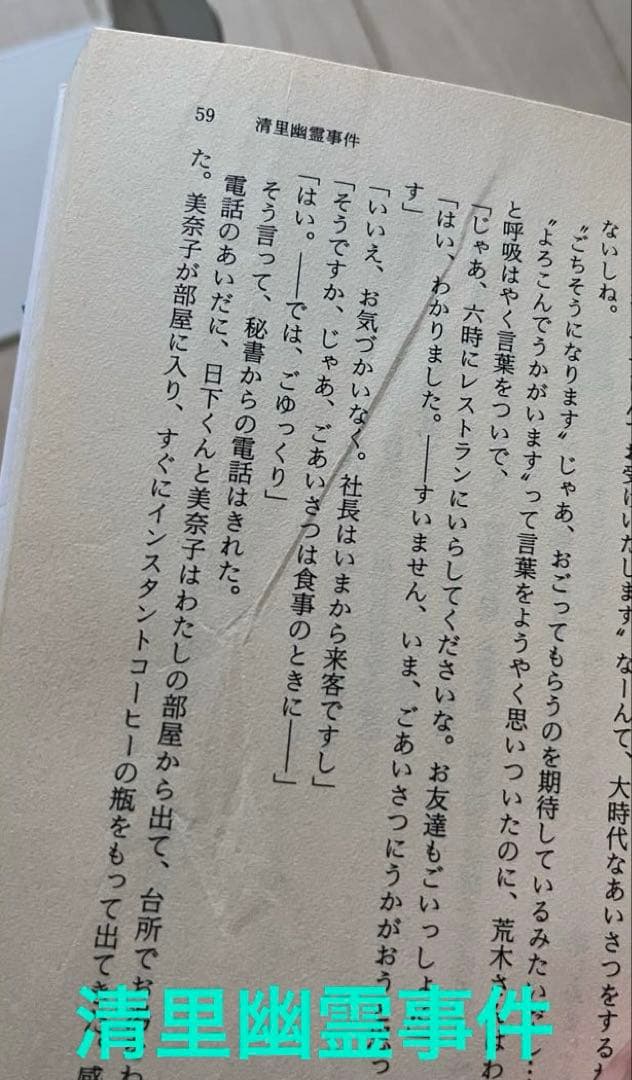 59
清里幽霊事件
お受けいたします〟なーんて、大時代なあいさつをする
ないしね。
〝ごちそうになります〟じゃあ、おごってもらうのを期待しているみたい
〝よろこんでうかがいます〟って言葉をようやく思いついたのに、荒木さ
と呼吸はやく言葉をついで、
「じゃあ、六時にレストランにいらしてくださいな。お友達もごいっしょ
「はい、わかりました。――すいません、いま、ごあいさつにうかがおう
す」
「いいえ、お気づかいなく。社長はいまから来客ですし」
「そうですか、じゃあ、ごあいさつは食事のときに――」
「はい。――では、ごゆっくり」
そう言って、秘書からの電話はきれた。
電話のあいだに、日下くんと美奈子はわたしの部屋から出て、台所で
た。美奈子が部屋に入り、すぐにインスタントコーヒーの瓶をもって出てき
感
清里幽霊事件